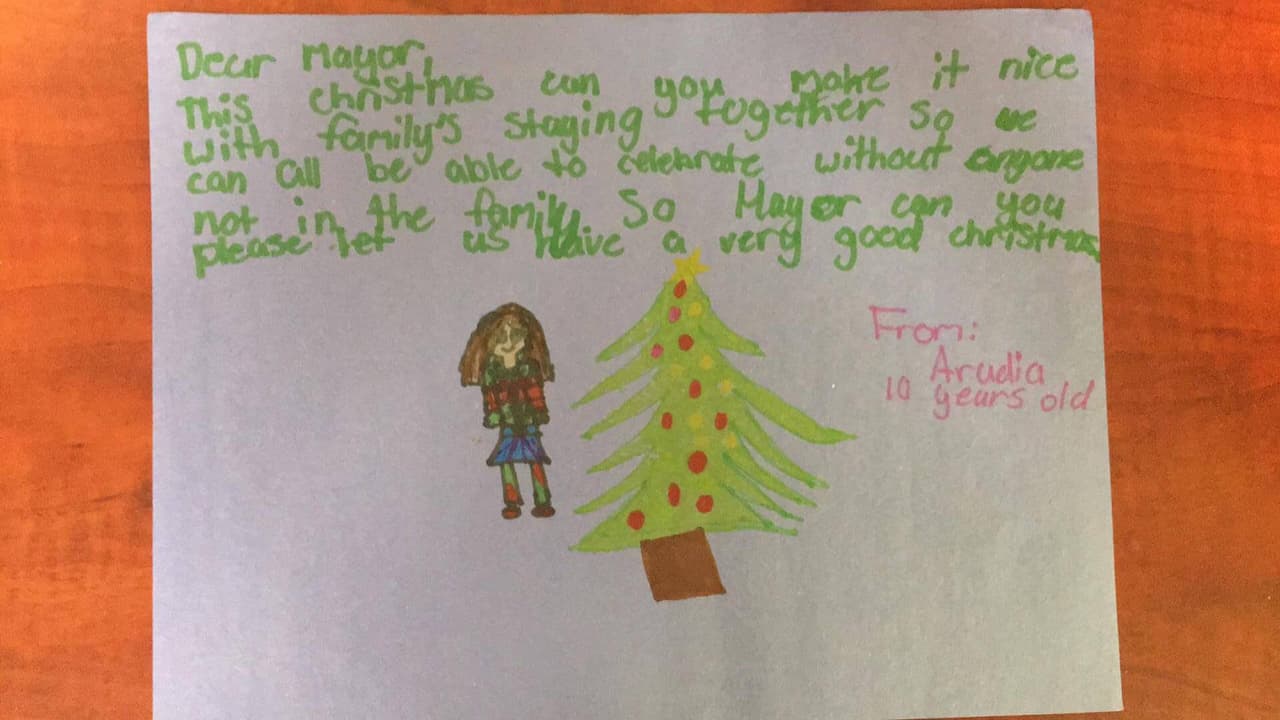 Dear Mayor,
This christmas can you make it nice
with family's staying together so we
can all be able to celebrate without anyone
not in the family. So Mayor can you
please let us have a very good christmas
From:
Arudia
10 years old